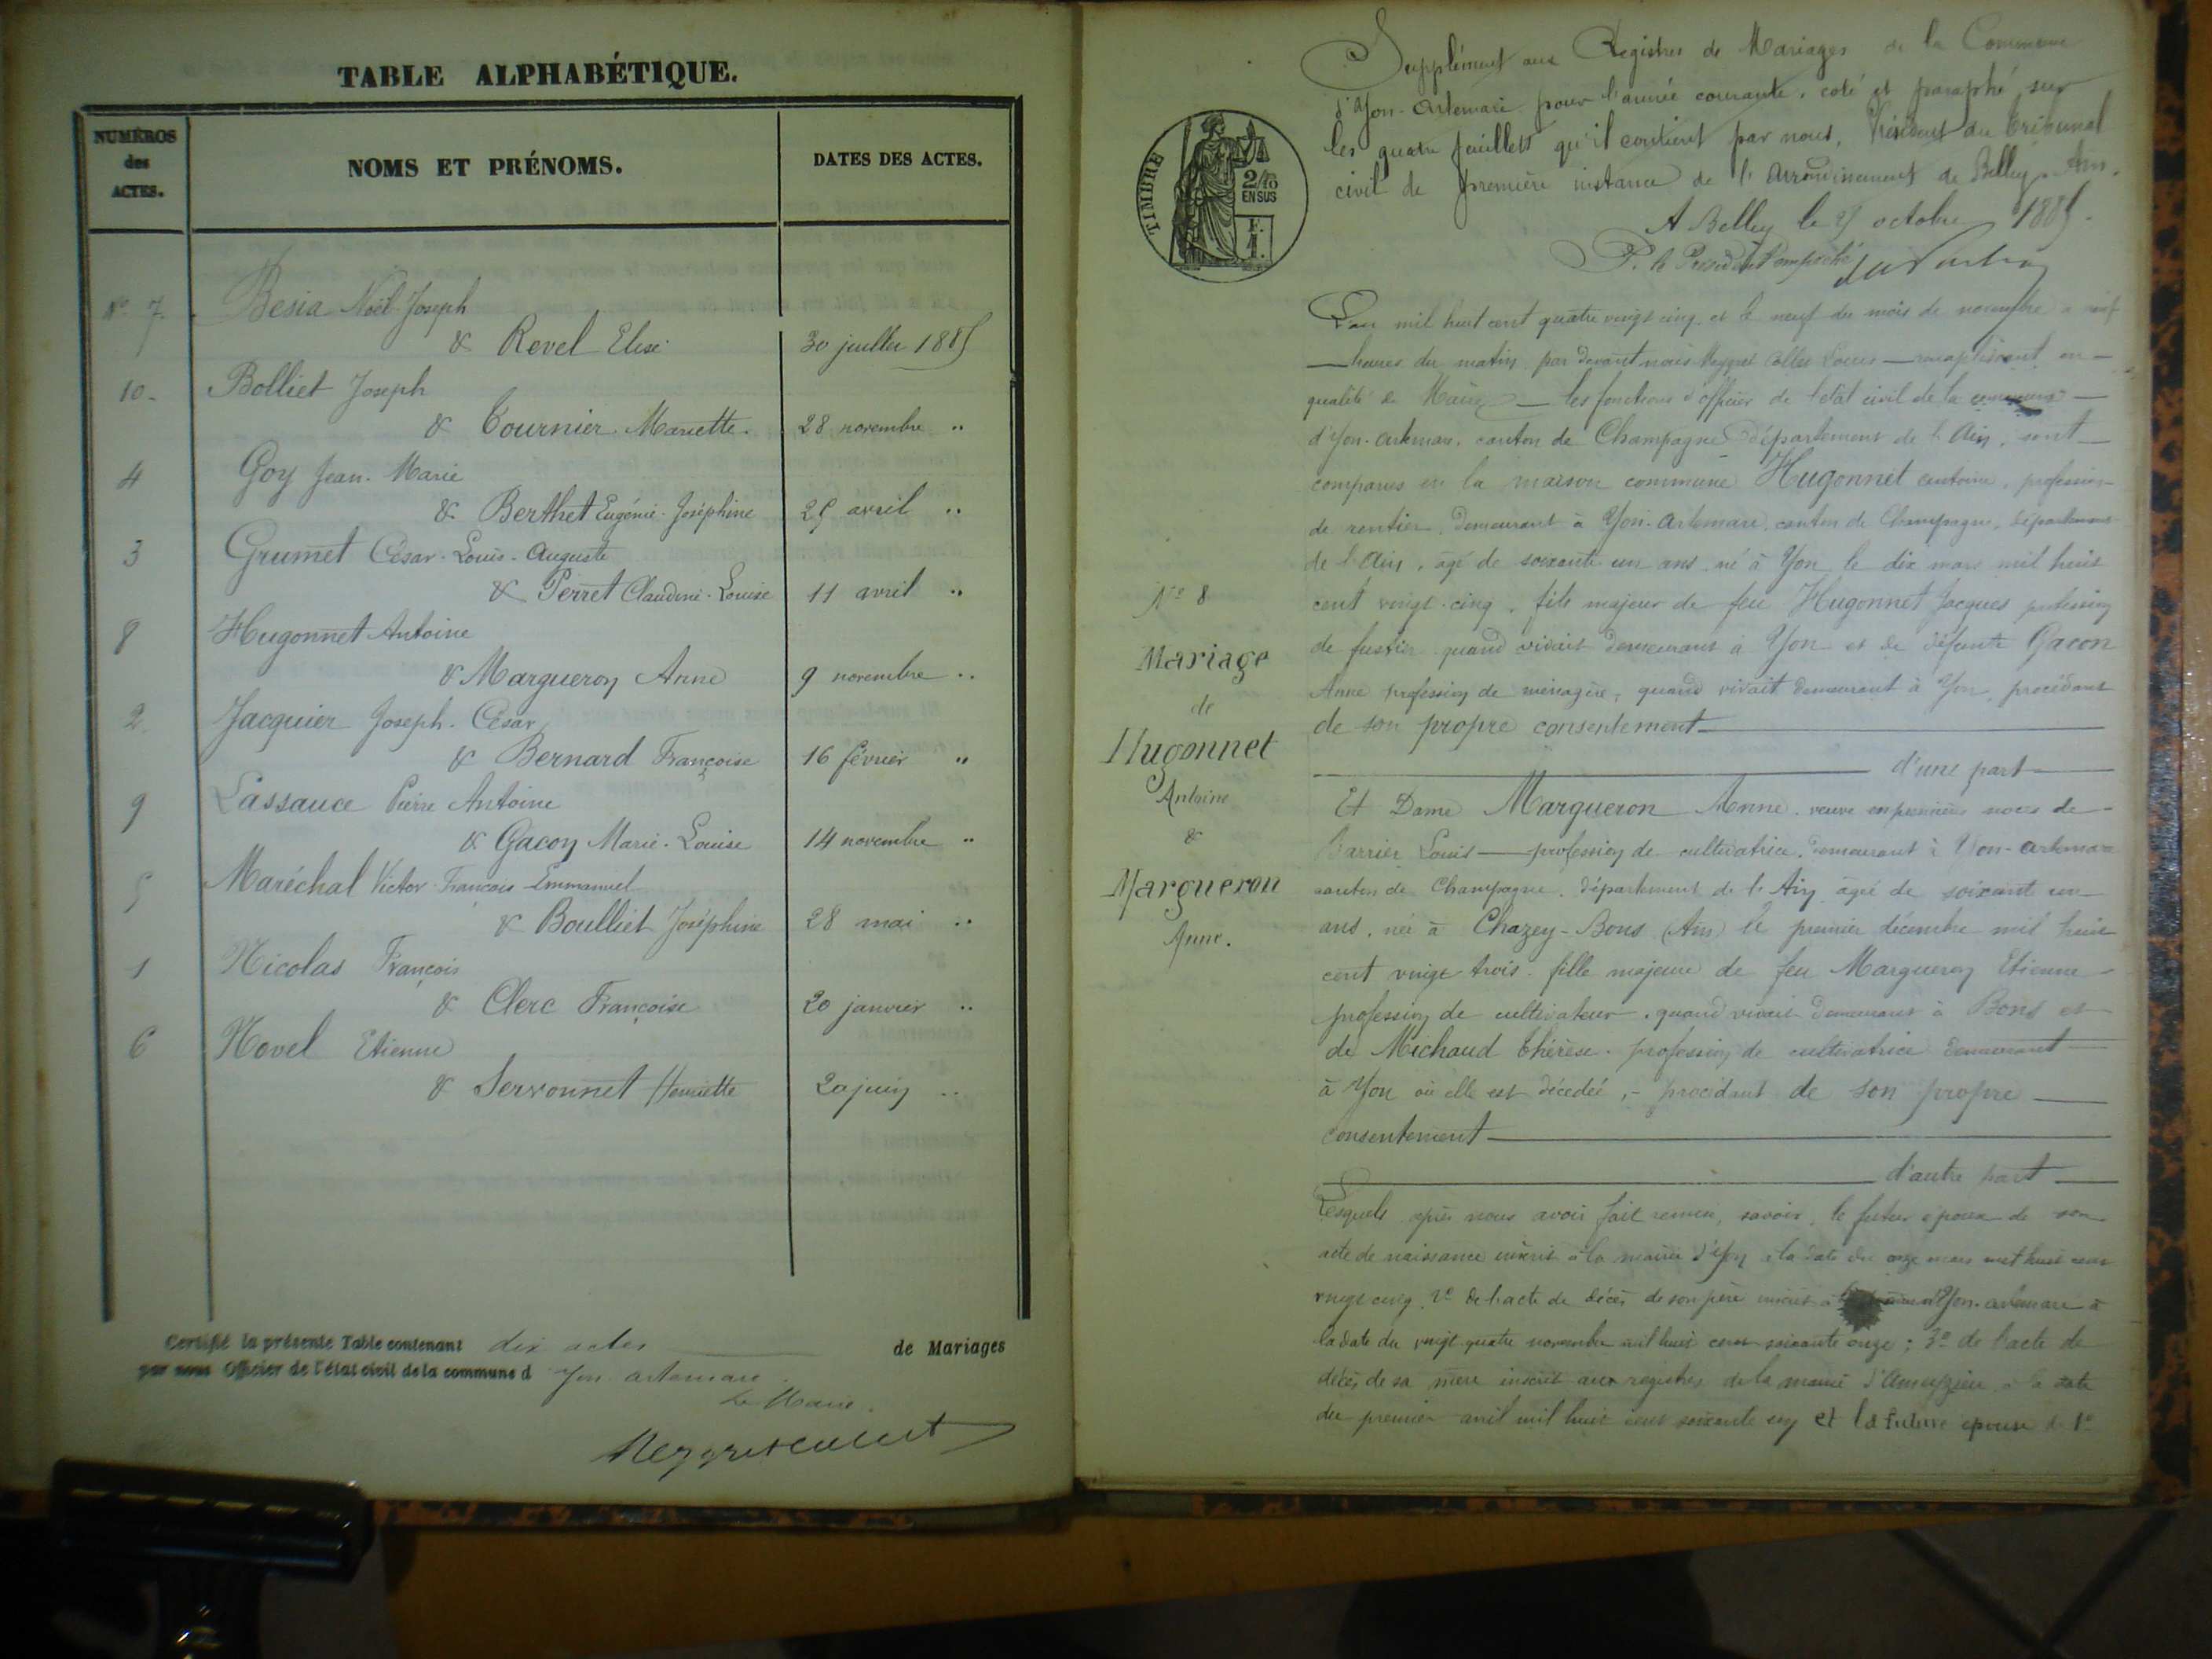 TABLE ALPHABÉTIQUE.
NUMÉROS des ACTES.
NOMS ET PRÉNOMS.
DATES DES ACTES.
N° 7. Besia Noël Joseph
& Revel Elise 30 juillet 1885
10. Bolliet Joseph
& Tournier Mariette. 28 novembre "
4 Goy Jean-Marie
& Berthet Eugénie-Joséphine 25 avril "
3 Grumet César-Louis-Auguste
& Perret Claudine-Louise 11 avril "
8 Hugonnet Antoine
& Margueron Anne 9 novembre "
2. Jacquier Joseph-César
& Bernard Françoise 16 février "
9 Lassauce Pierre Antoine
& Gacon Marie-Louise 14 novembre "
5 Maréchal Victor François Emmanuel
& Boulliet Joséphine 28 mai "
1 Nicolas François
& Clerc Françoise 20 janvier "
6 Novel Etienne
& Servonnet Henriette 20 juin "
Certifié la présente Table contenant dix actes de Mariages
par nous Officier de l'état civil de la commune d Yon artemare
Le Maire.
TIMBRE
2/10
EN SUS
F.
1.
Supplément aux Registres de Mariages de la Commune
d'Yon-Artemare pour l'année courante, coté et paraphé sur
les quatre feuillets qu'il contient par nous, Président du Tribunal
civil de première instance de l'Arrondissement de Belley, Ain.
A Belley le 7 octobre 1885.
P. le Président empêché
L'an mil huit cent quatre vingt cinq et le neuf du mois de novembre à neuf
heures du matin, par devant nous Louis remplissant en
qualité de Maire les fonctions d'officier de l'état civil de la commune
d'Yon-artemare, canton de Champagne département de l'Ain, sont
comparus en la maison commune Hugonnet antoine, profession
de rentier, demeurant à Yon-Artemare, canton de Champagne, département
de l'Ain, âgé de soixante un ans né à Yon le dix mars mil huit
cent vingt-cinq, fils majeur de feu Hugonnet Jacques profession
de quand vivait demeurant à Yon et de défunte Gacon
Anne profession de ménagère, quand vivait demeurant à Yon, procédant
de son propre consentement
d'une part
N° 8
Mariage
de
Hugonnet
Antoine
&
Margueron
Anne.
Et Dame Margueron Anne, veuve en premières noces de
Barrier Louis profession de cultivatrice, demeurant à Yon-artemare
canton de Champagne, département de l'Ain âgée de soixante un
ans, née à Chazey-Bons (Ain) le premier décembre mil huit
cent vingt trois, fille majeure de feu Margueron Etienne
profession de cultivateur, quand vivait demeurant à Bons et
de Michaud Thérèse, profession de cultivatrice demeurant
à Yon où elle est décédée, - procédant de son propre
consentement
d'autre part
Lesquels après nous avoir fait remise, savoir, le futur époux de son
acte de naissance inscrit à la mairie d'Yon à la date du onze mars mil huit cent
vingt cinq, 2° de l'acte de décès de son père inscrit à d'Yon-artemare à
la date du vingt-quatre novembre mil huit cent soixante onze; 3° de l'acte de
décès de sa mère inscrit aux registres de la mairie d'Ameyzieu à la date
du premier avril mil huit cent soixante et la future épouse de 1°